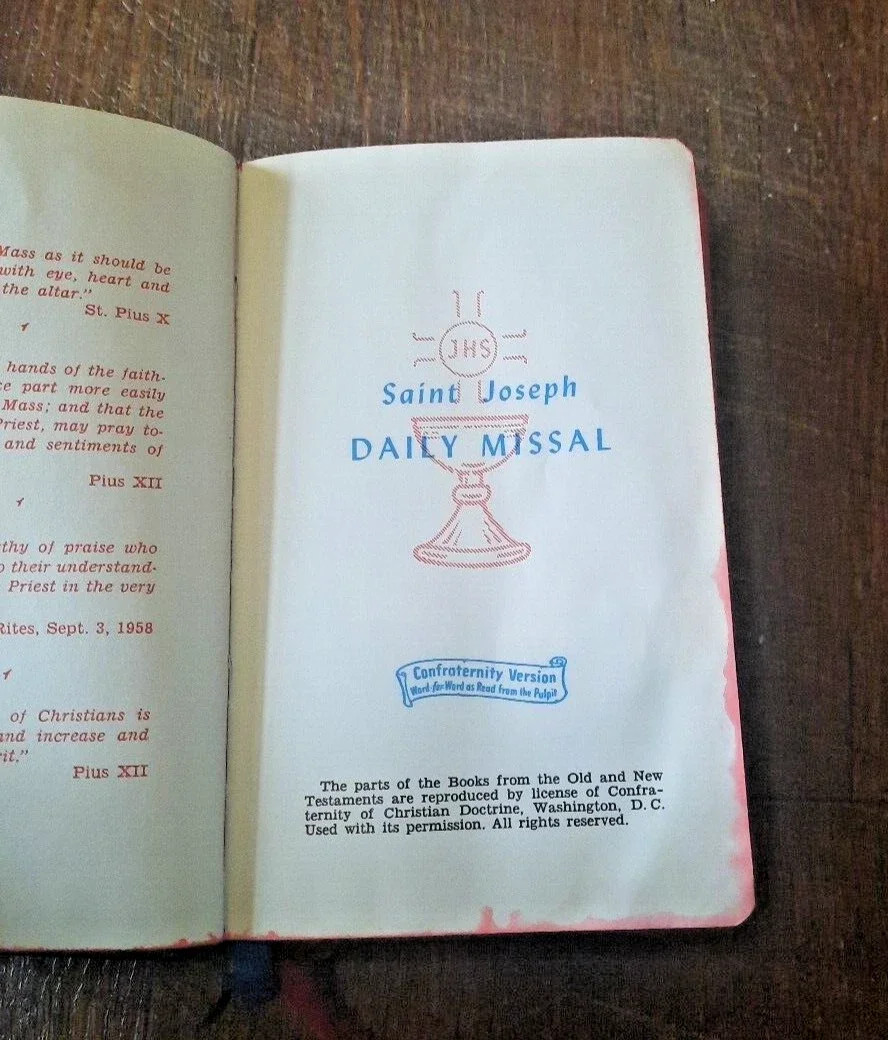 Mass as it should be
with eye, heart and
the altar."
St. Pius X
hands of the faith-
part more easily
Mass; and that the
Priest, may pray to-
and sentiments of
Pius XII
thy of praise who
their understand-
Priest in the very
Rites, Sept. 3, 1958
of Christians is
and increase and
rit."
Pius XII
JHS
Saint Joseph
DAILY MISSAL
Confraternity Version
Word for Word as Read from the Pulpit
The parts of the Books from the Old and New
Testaments are reproduced by license of Confra-
ternity of Christian Doctrine, Washington, D. C.
Used with its permission. All rights reserved.